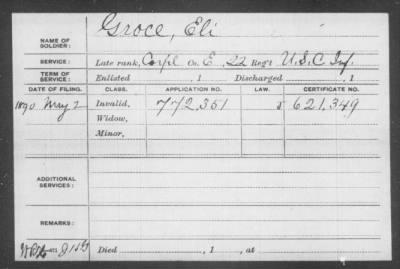 NAME OF SOLDIER: Groce, Eli
SERVICE: Late rank, Corpl Co. E, 22 Reg't U.S.C. Inf.
TERM OF SERVICE: Enlisted , 1 Discharged , 1
DATE OF FILING. CLASS. APPLICATION NO. LAW. CERTIFICATE NO.
1890 May 2 Invalid, 772,351 621,349
Widow,
Minor,
ADDITIONAL SERVICES:
REMARKS:
Died , 1 , at